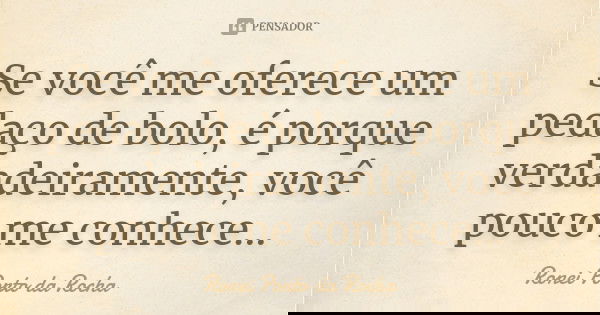 PENSADOR
Se você me oferece um
pedaço de bolo, é porque
verdadeiramente, você
pouco me conhece...
Ronei Porto da Rocha